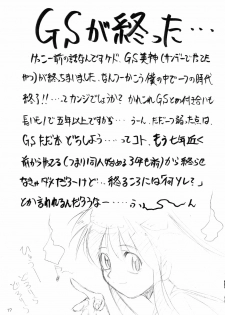 GSが終った…
けっこー前の話なんですケド、GS美神(サンデーでたこと
やつ)が終っちまいました、なんつーかこう僕の中で一つの時代
終了!!…ってカンジでしょうか? かれこれGSとの付き合いも
長いもんで五年以上ですか…… うーん、ただ一つ弱った点は、
GSただ本どちしよう……ってコト、もう七年近く
前から唱ってる(つまり同人始める3年も前)から終らせ
なきゃダメだろーけど… 終るころには「何ソレ?」
とか言われるんだろうなー…… ふぅ〜ん